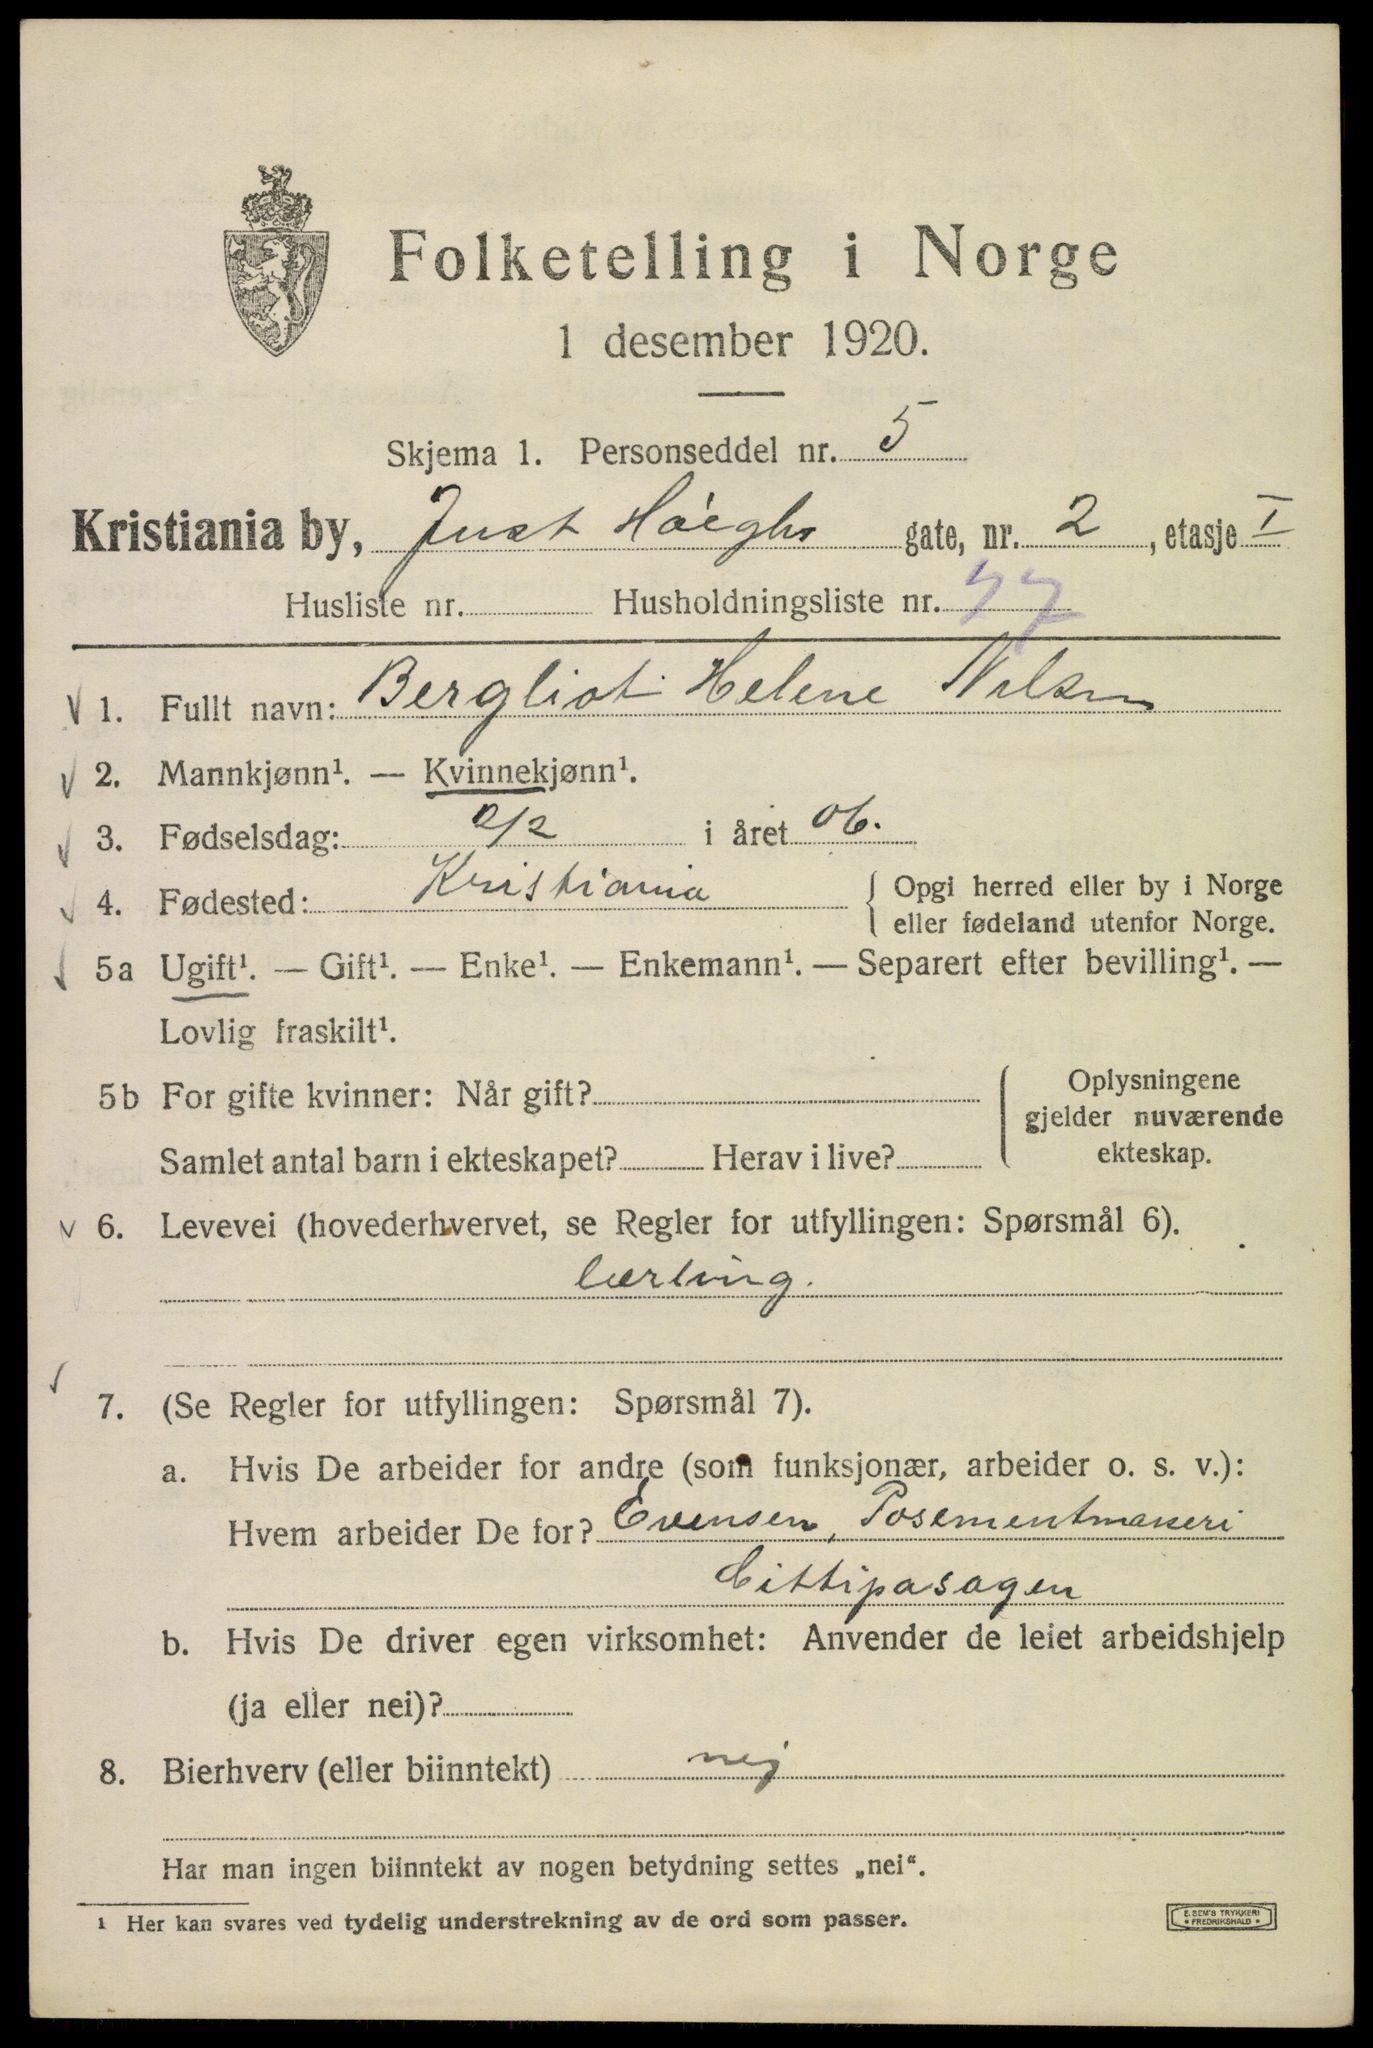 Folketelling i Norge
1 desember 1920.
Skjema 1. Personseddel nr. 5
Kristiania by, Just Høeghs gate, nr. 2, etasje I
Husliste nr. Husholdningsliste nr. 77
1. Fullt navn: Bergliot Helene Nilsen
2. Mannkjønn¹. — Kvinnekjønn¹.
3. Fødselsdag: 2/2 i året 06.
4. Fødested: Kristiania { Opgi herred eller by i Norge
eller fødeland utenfor Norge.
5a Ugift¹. — Gift¹. — Enke¹. — Enkemann¹. — Separert efter bevilling¹. —
Lovlig fraskilt¹.
5b For gifte kvinner: Når gift? { Oplysningene
gjelder nuværende
Samlet antal barn i ekteskapet? Herav i live? ekteskap.
6. Levevei (hovederhvervet, se Regler for utfyllingen: Spørsmål 6).
lærling.
7. (Se Regler for utfyllingen: Spørsmål 7).
a. Hvis De arbeider for andre (som funksjonær, arbeider o. s. v.):
Hvem arbeider De for? Evensen, Posementmakeri
Cittipasagen
b. Hvis De driver egen virksomhet: Anvender de leiet arbeidshjelp
(ja eller nei)?
8. Bierhverv (eller biinntekt) nej
Har man ingen biinntekt av nogen betydning settes „nei“.
¹ Her kan svares ved tydelig understrekning av de ord som passer.
E. SEM'S TRYKKERI
* FREDRIKSHALD *